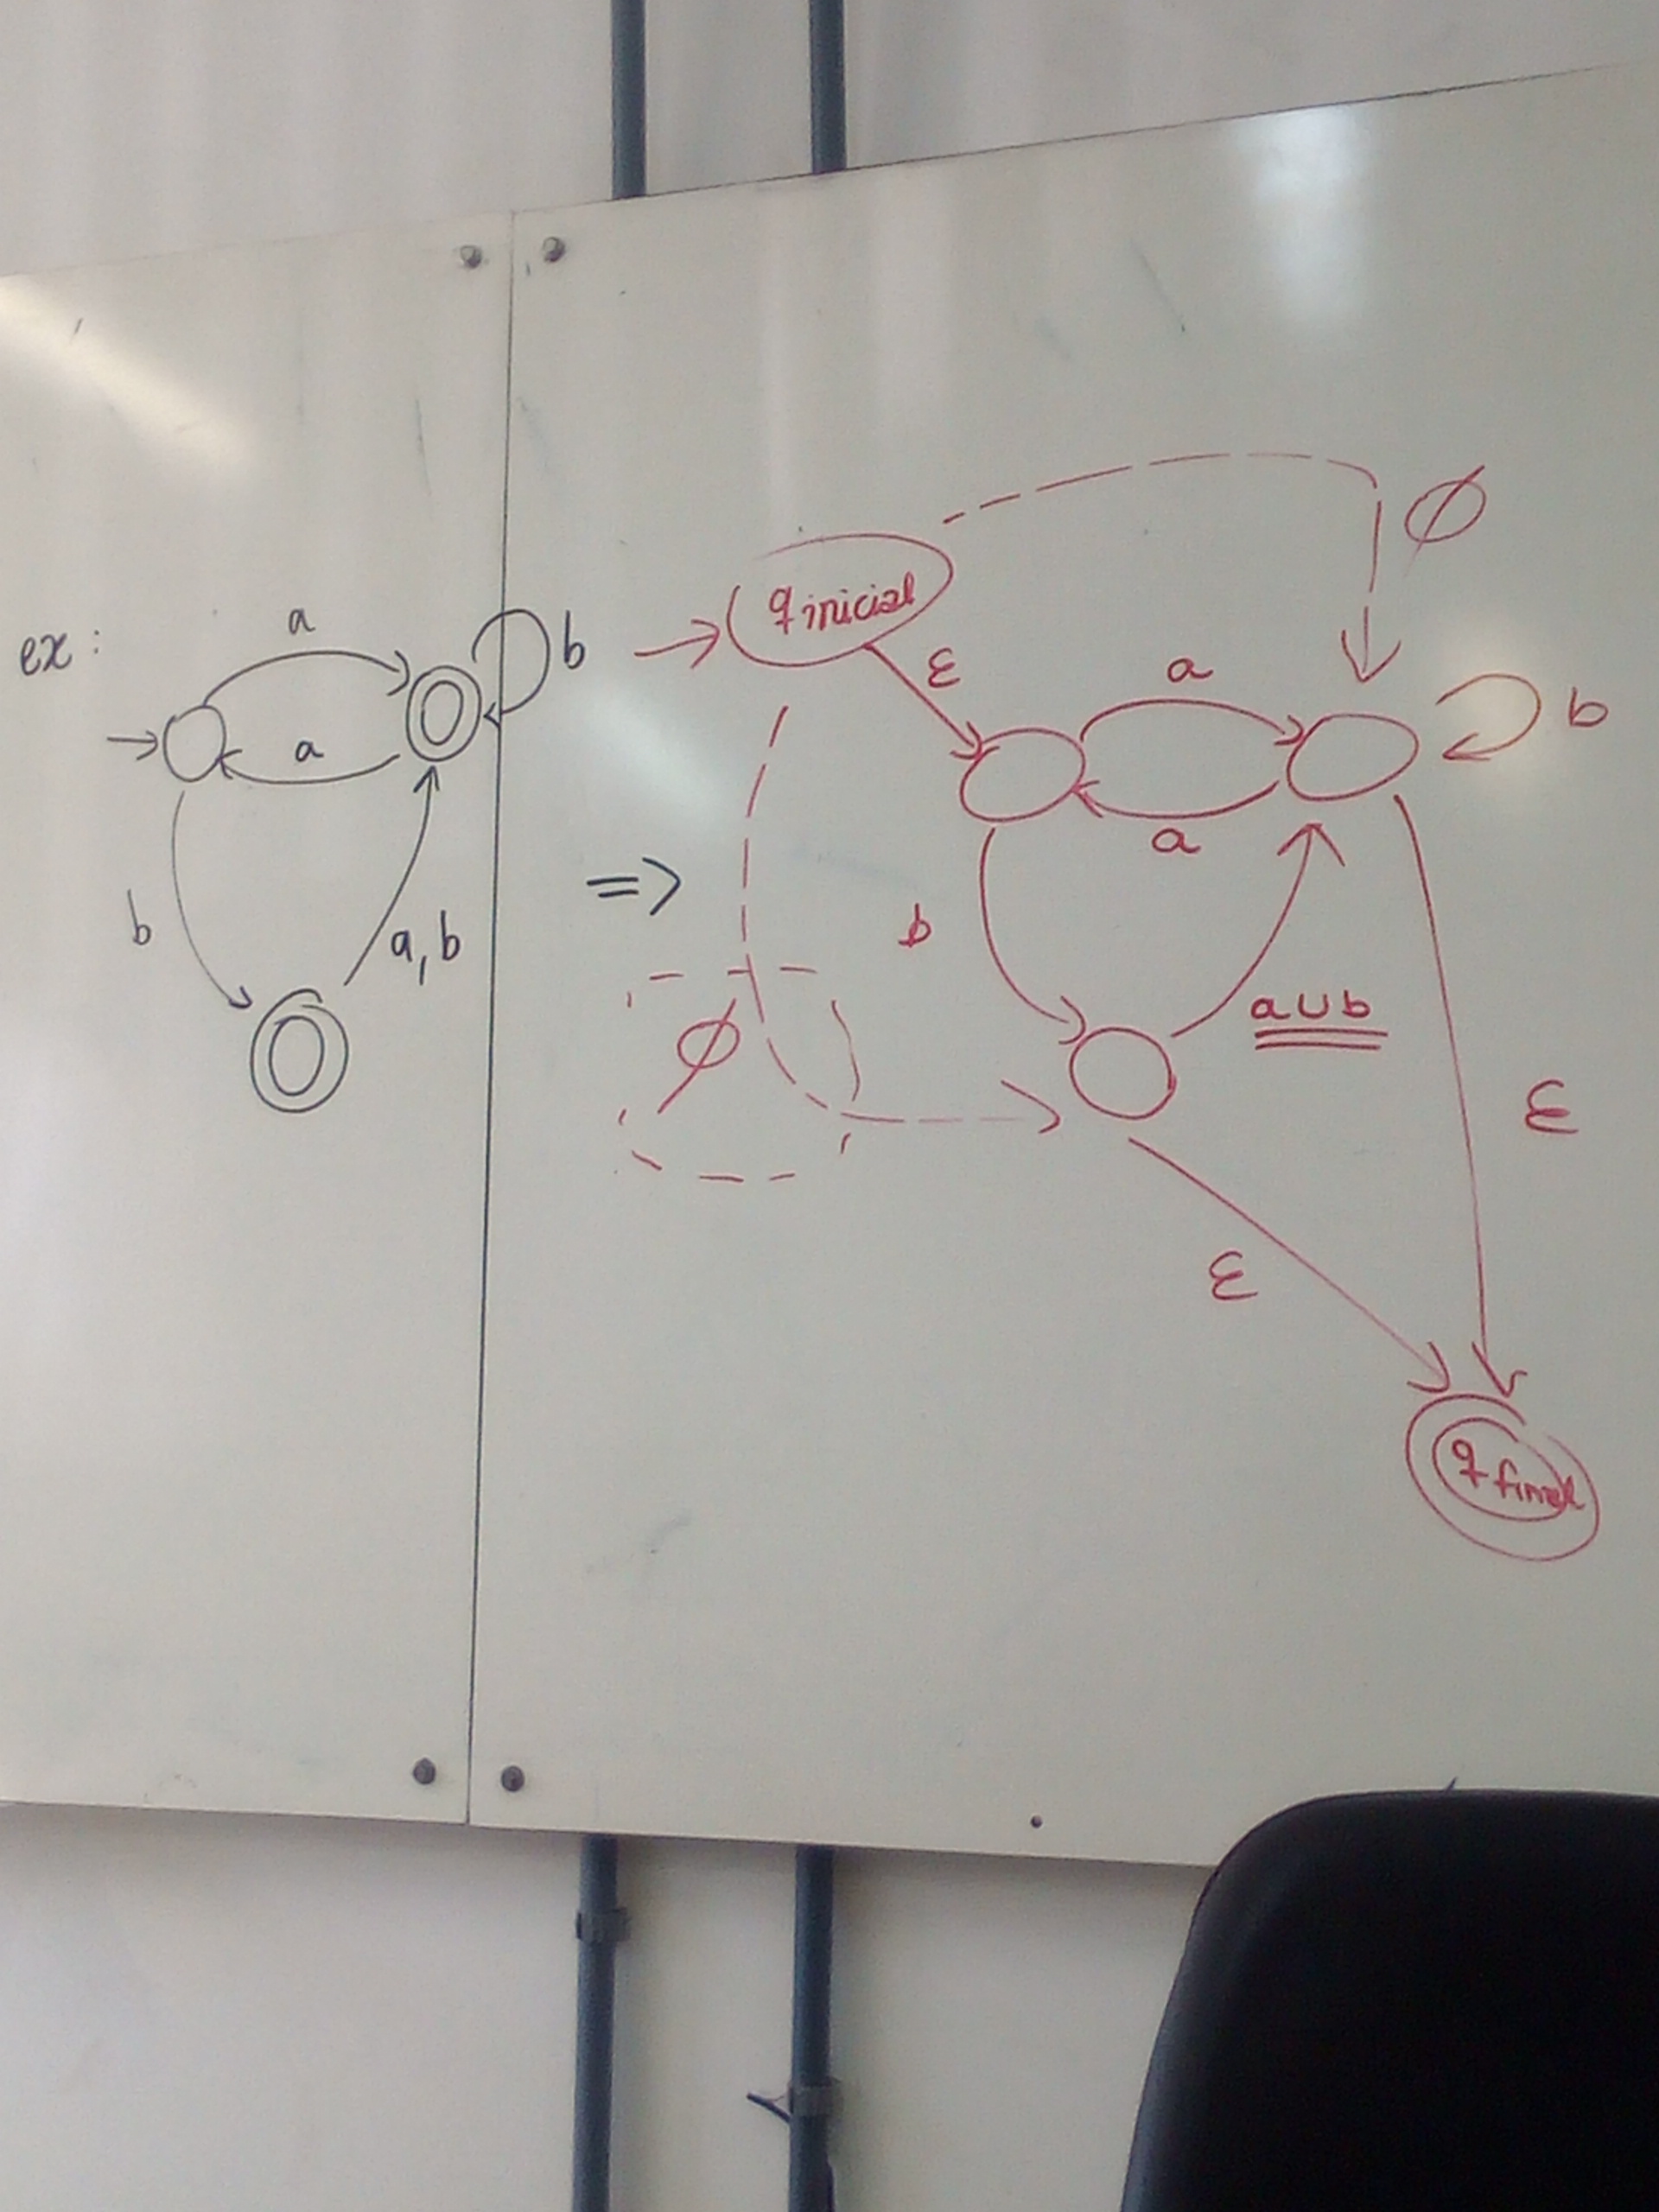 ex:
a
b
a
b
a,b
=>
q inicial
ε
∅
a
b
a
b
a∪b
∅
ε
ε
q final